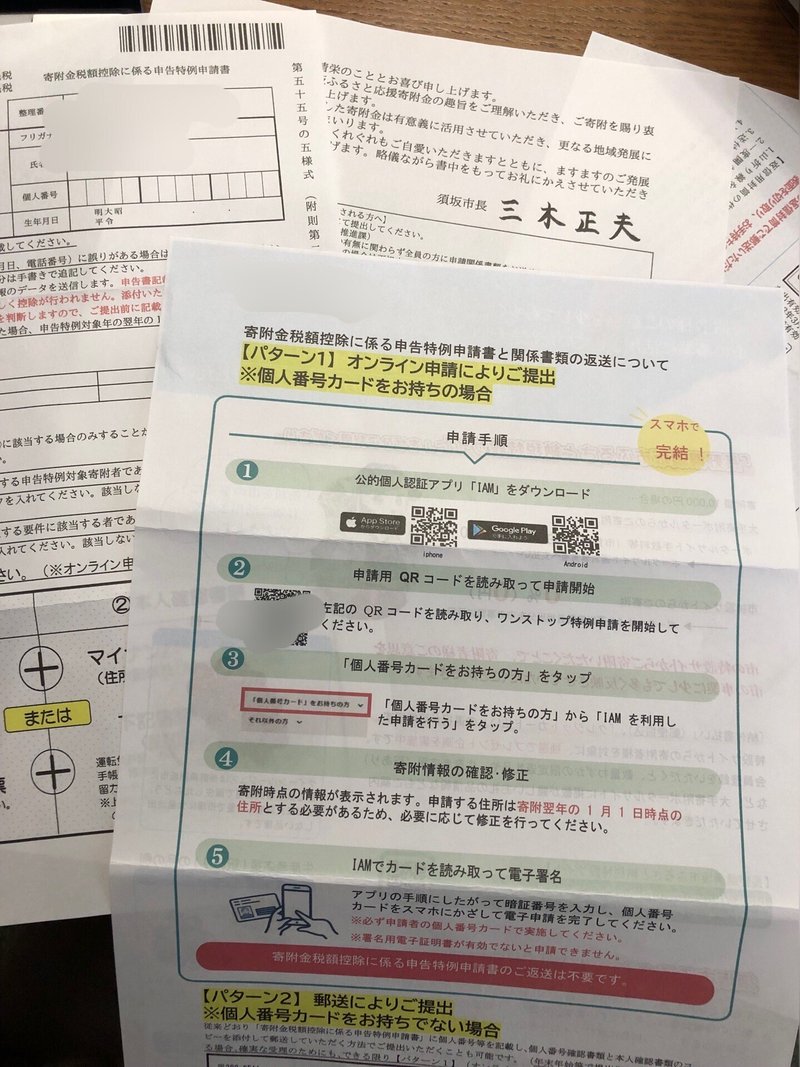 寄附金税額控除に係る申告特例申請書
整理番
フリガナ
個人番号
生年月日
明大昭
平令
第五十五号の五様式
(附則第
載してください。
月日、電話番号)に誤りがある場合は
分は手書きで追記してください。
報のデータを送信します。申告書記載
しく控除が行われません。添付いた
を判断しますので、ご提出前に記載
た場合、申告特例対象年の翌年の1
に該当する場合のみすることが
する申告特例対象寄附者であ
を入れてください。該当しな
する要件に該当する者であ
入れてください。該当しない
さい。(※オンライン申
②
マイ
(住所
または
運転
手帳
栄のこととお喜び申し上げます。
ふるさと応援寄附金の趣旨をご理解いただき、ご寄附を賜り衷
上げます。
した寄附金は有意義に活用させていただき、更なる地域発展に
いります。
くれぐれもご自愛いただきますとともに、ますますのご発展
げます。略儀ながら書中をもってお礼にかえさせていただき
須坂市長 三木正夫
される方へ】
て提出してください。
推進課)
有無に関わらず全員の方に申請関係書類を
寄附金税額控除に係る申告特例申請書と関係書類の返送について
【パターン1】オンライン申請によりご提出
※個人番号カードをお持ちの場合
スマホで
完結!
申請手順
1 公的個人認証アプリ「IAM」をダウンロード
App Store
からダウンロード
iphone
Google Play
で手に入れよう
Android
2 申請用 QR コードを読み取って申請開始
左記の QR コードを読み取り、ワンストップ特例申請を開始して
ください。
3 「個人番号カードをお持ちの方」をタップ
「個人番号カード」をお持ちの方
それ以外の方
「個人番号カードをお持ちの方」から「IAM を利用し
た申請を行う」をタップ。
4 寄附情報の確認・修正
寄附時点の情報が表示されます。申請する住所は寄附翌年の 1 月 1 日時点の
住所とする必要があるため、必要に応じて修正を行ってください。
5 IAMでカードを読み取って電子署名
アプリの手順にしたがって暗証番号を入力し、個人番号
カードをスマホにかざして電子申請を完了してください。
※必ず申請者の個人番号カードで実施してください。
※署名用電子証明書が有効でないと申請できません。
寄附金税額控除に係る申告特例申請書のご返送は不要です。
【パターン2】郵送によりご提出
※個人番号カードをお持ちでない場合
従来どおり「寄附金税額控除に係る申告特例申請書」に個人番号等を記載し、個人番号確認書類と本人確認書類のコ
ピーを添付して郵送していただく方法でご提出いただくことも可能です。(年末年始
る場合、確実な受理のためにも、できる限り【パターン1】